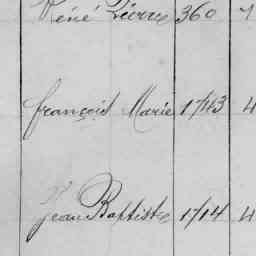 René Pierre 360
françois Marie 1743 4
Jean Baptiste 1714 4